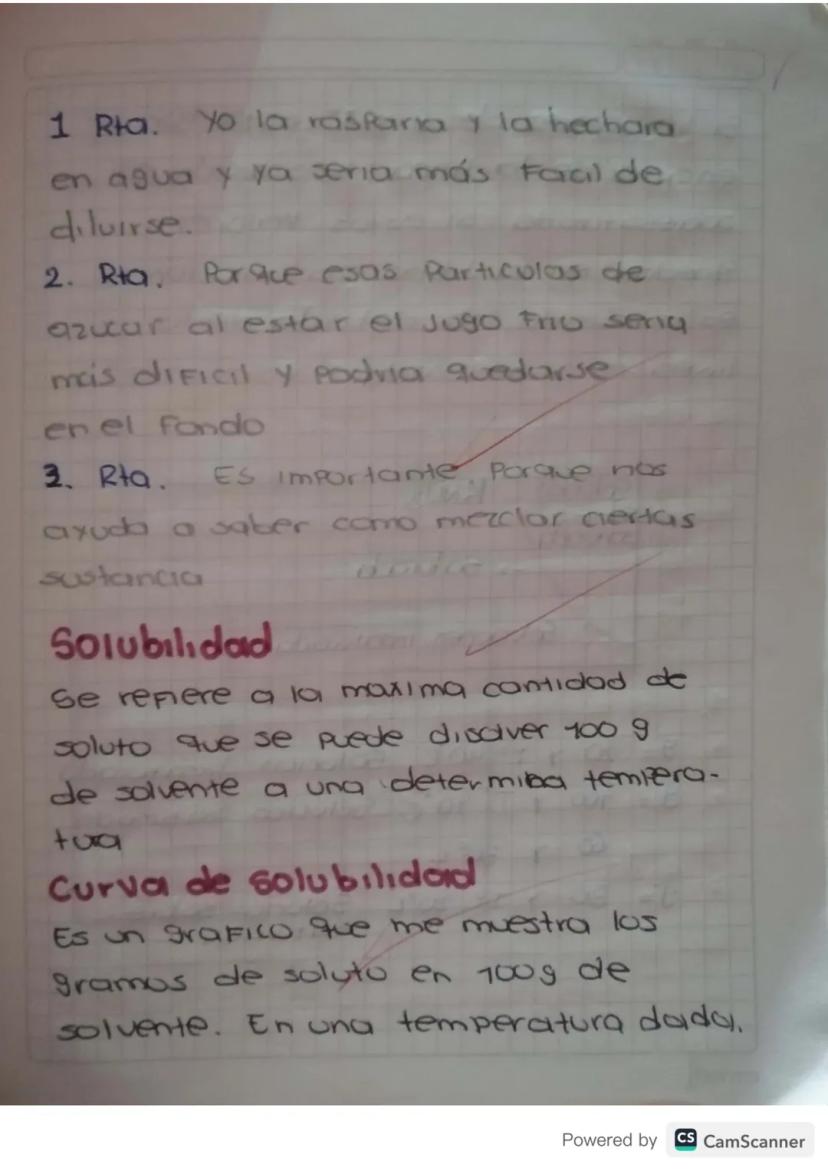 1 Rta. Yo la rasparia y la hechara
en agua y ya seria más Facil de
diluirse.
2. Rta. Porque esas Particulas de
azucar al estar el Jugo Frio seria
mas dificil y podria quedarse
en el Fondo
3. Rta. Es importante, Porque nos
ayuda a saber como mezclar ciertas
sustancia
Solubilidad
Se refiere a la maxima cantidad de
soluto que se puede disolver 100 g
de solvente a una determina tempera-
tura
Curva de solubilidad
Es un grafico que me muestra los
gramos de soluto en 100g de
solvente. En una temperatura dada.
Powered by CS CamScanner